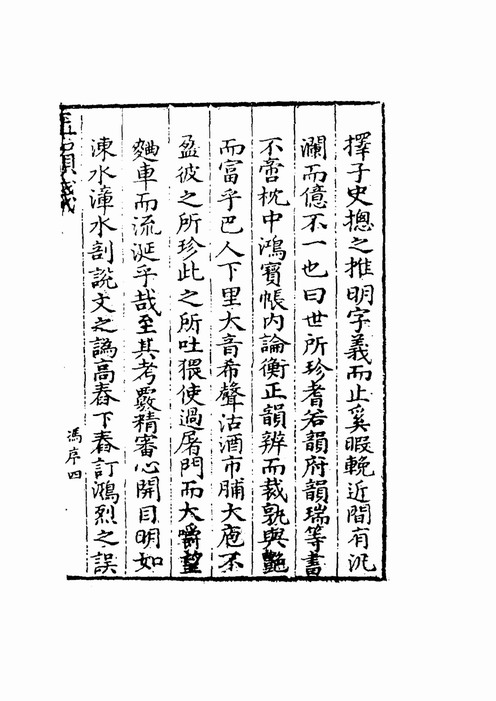 擇子史摠之推明字義而止奚暇輓近間有汎
瀾而億不一也曰世所珍耆若韻府韻瑞等書
不啻枕中鴻寳帳內論衡正韻辨而裁孰與豔
而富乎巴人下里大音希聲沽酒市脯大庖不
盈彼之所珍此之所吐猥使過屠門而大嚼望
麯車而流涎乎哉至其考覈精審心開目明如
涑水漳水剖說文之譌高舂下舂訂鴻烈之誤
馮序四